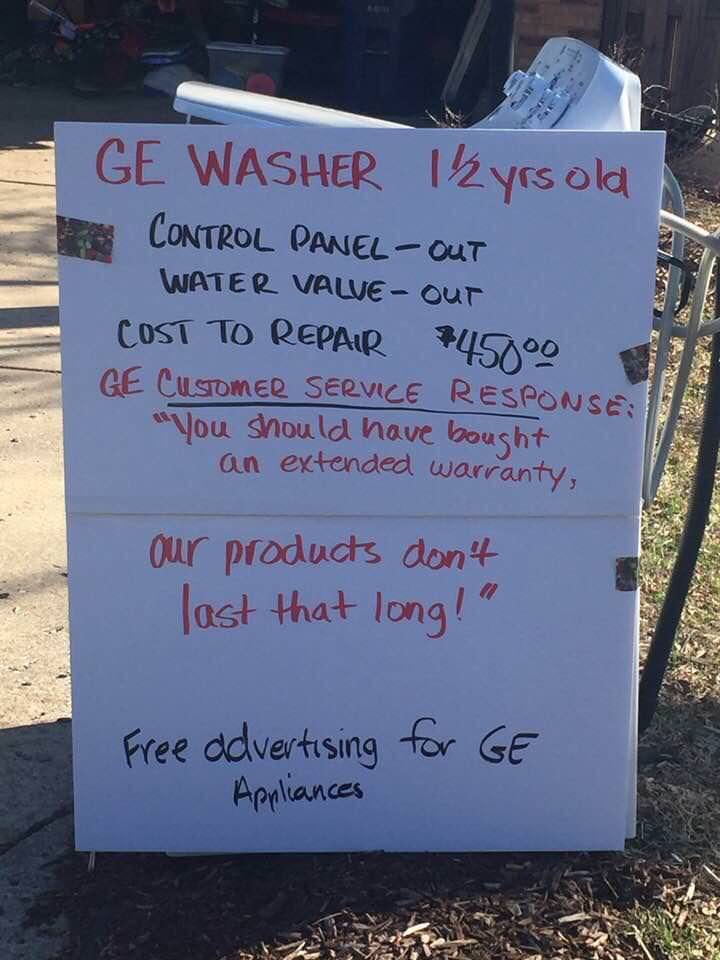 GE WASHER 1 1/2 yrs old
CONTROL PANEL - OUT
WATER VALVE - OUT
COST TO REPAIR $450⁰⁰
GE CUSTOMER SERVICE RESPONSE:
"You should have bought
an extended warranty,
our products don't
last that long!"
Free advertising for GE
Appliances